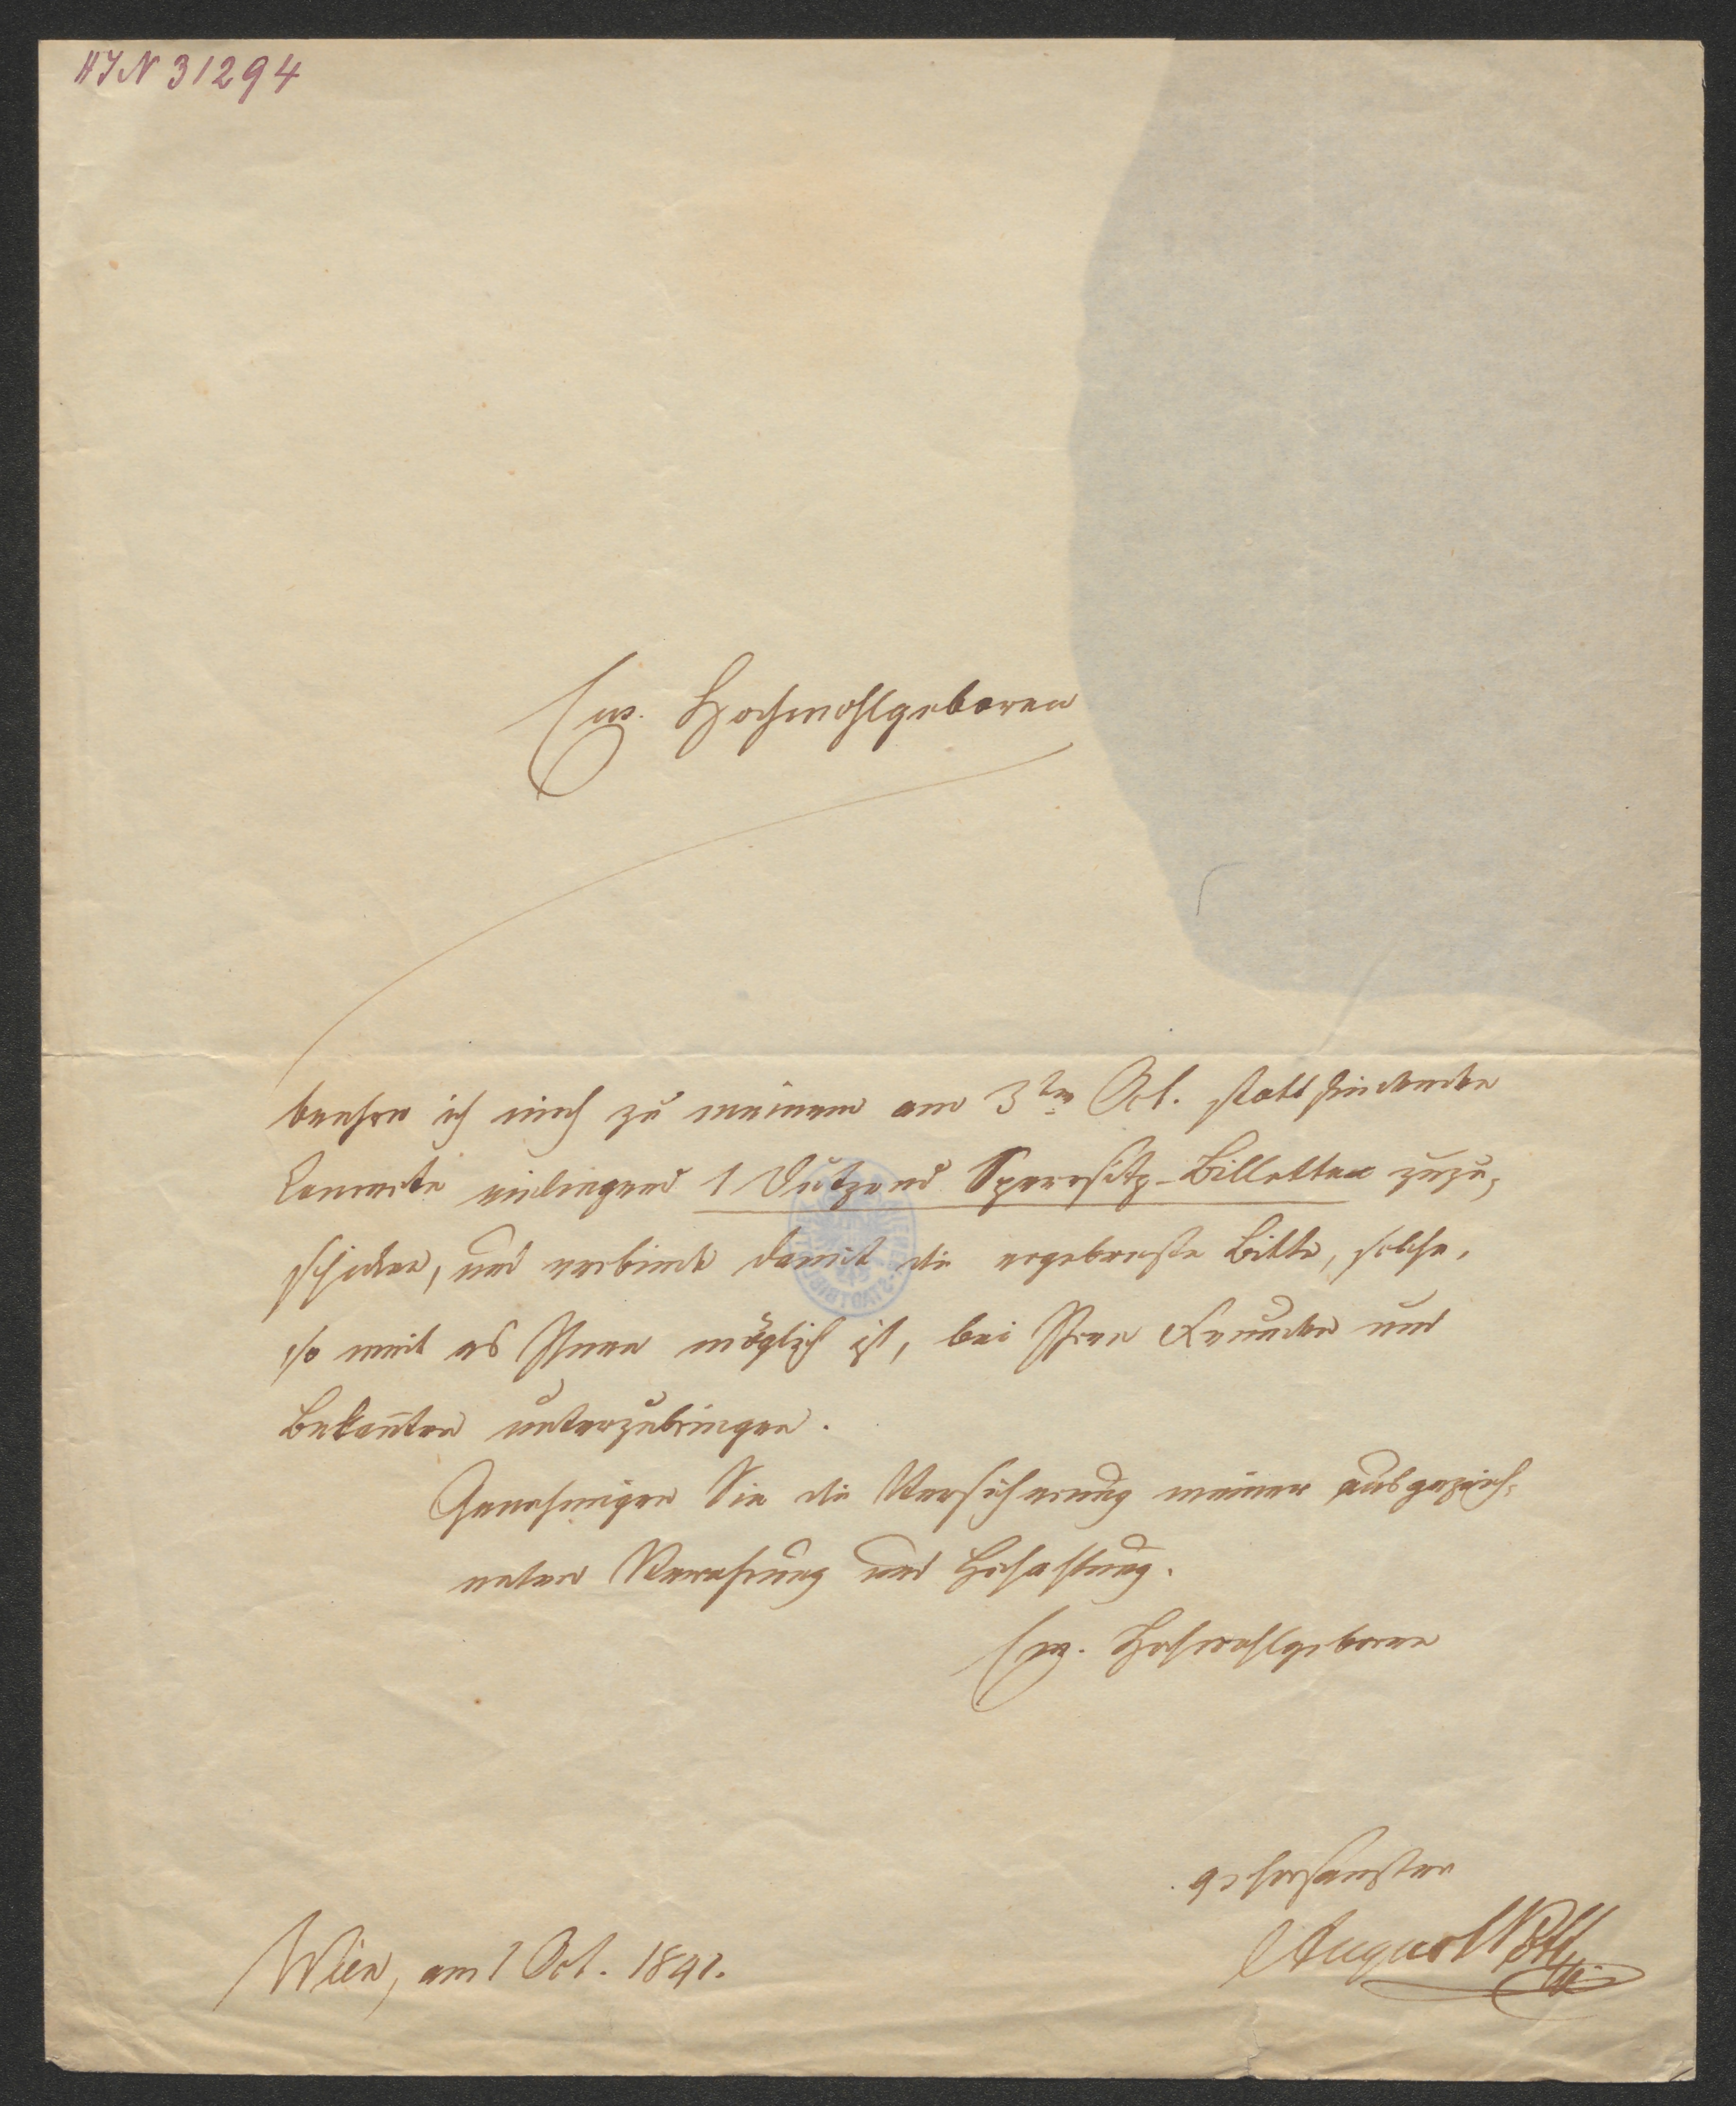 HIN 31294
Ew. Hochwohlgeboren
beehre ich mich zu meinem am 3ten Oct. stattfindenden
Concerte einliegend 1 Dutzend Sperrsitz-Billetten zuzu-
schicken, und verbinde damit die ergebenste Bitte, solche,
so weit es Ihnen möglich ist, bei Ihren Freunden und
Bekañten unterzubringen.
Genehmigen Sie die Versicherung meiner ausgezeich-
neten Verehrung und Hochachtung.
Ew. Hochwohlgeboren
gehorsamster
August
Wien, am 1 Oct. 1841.